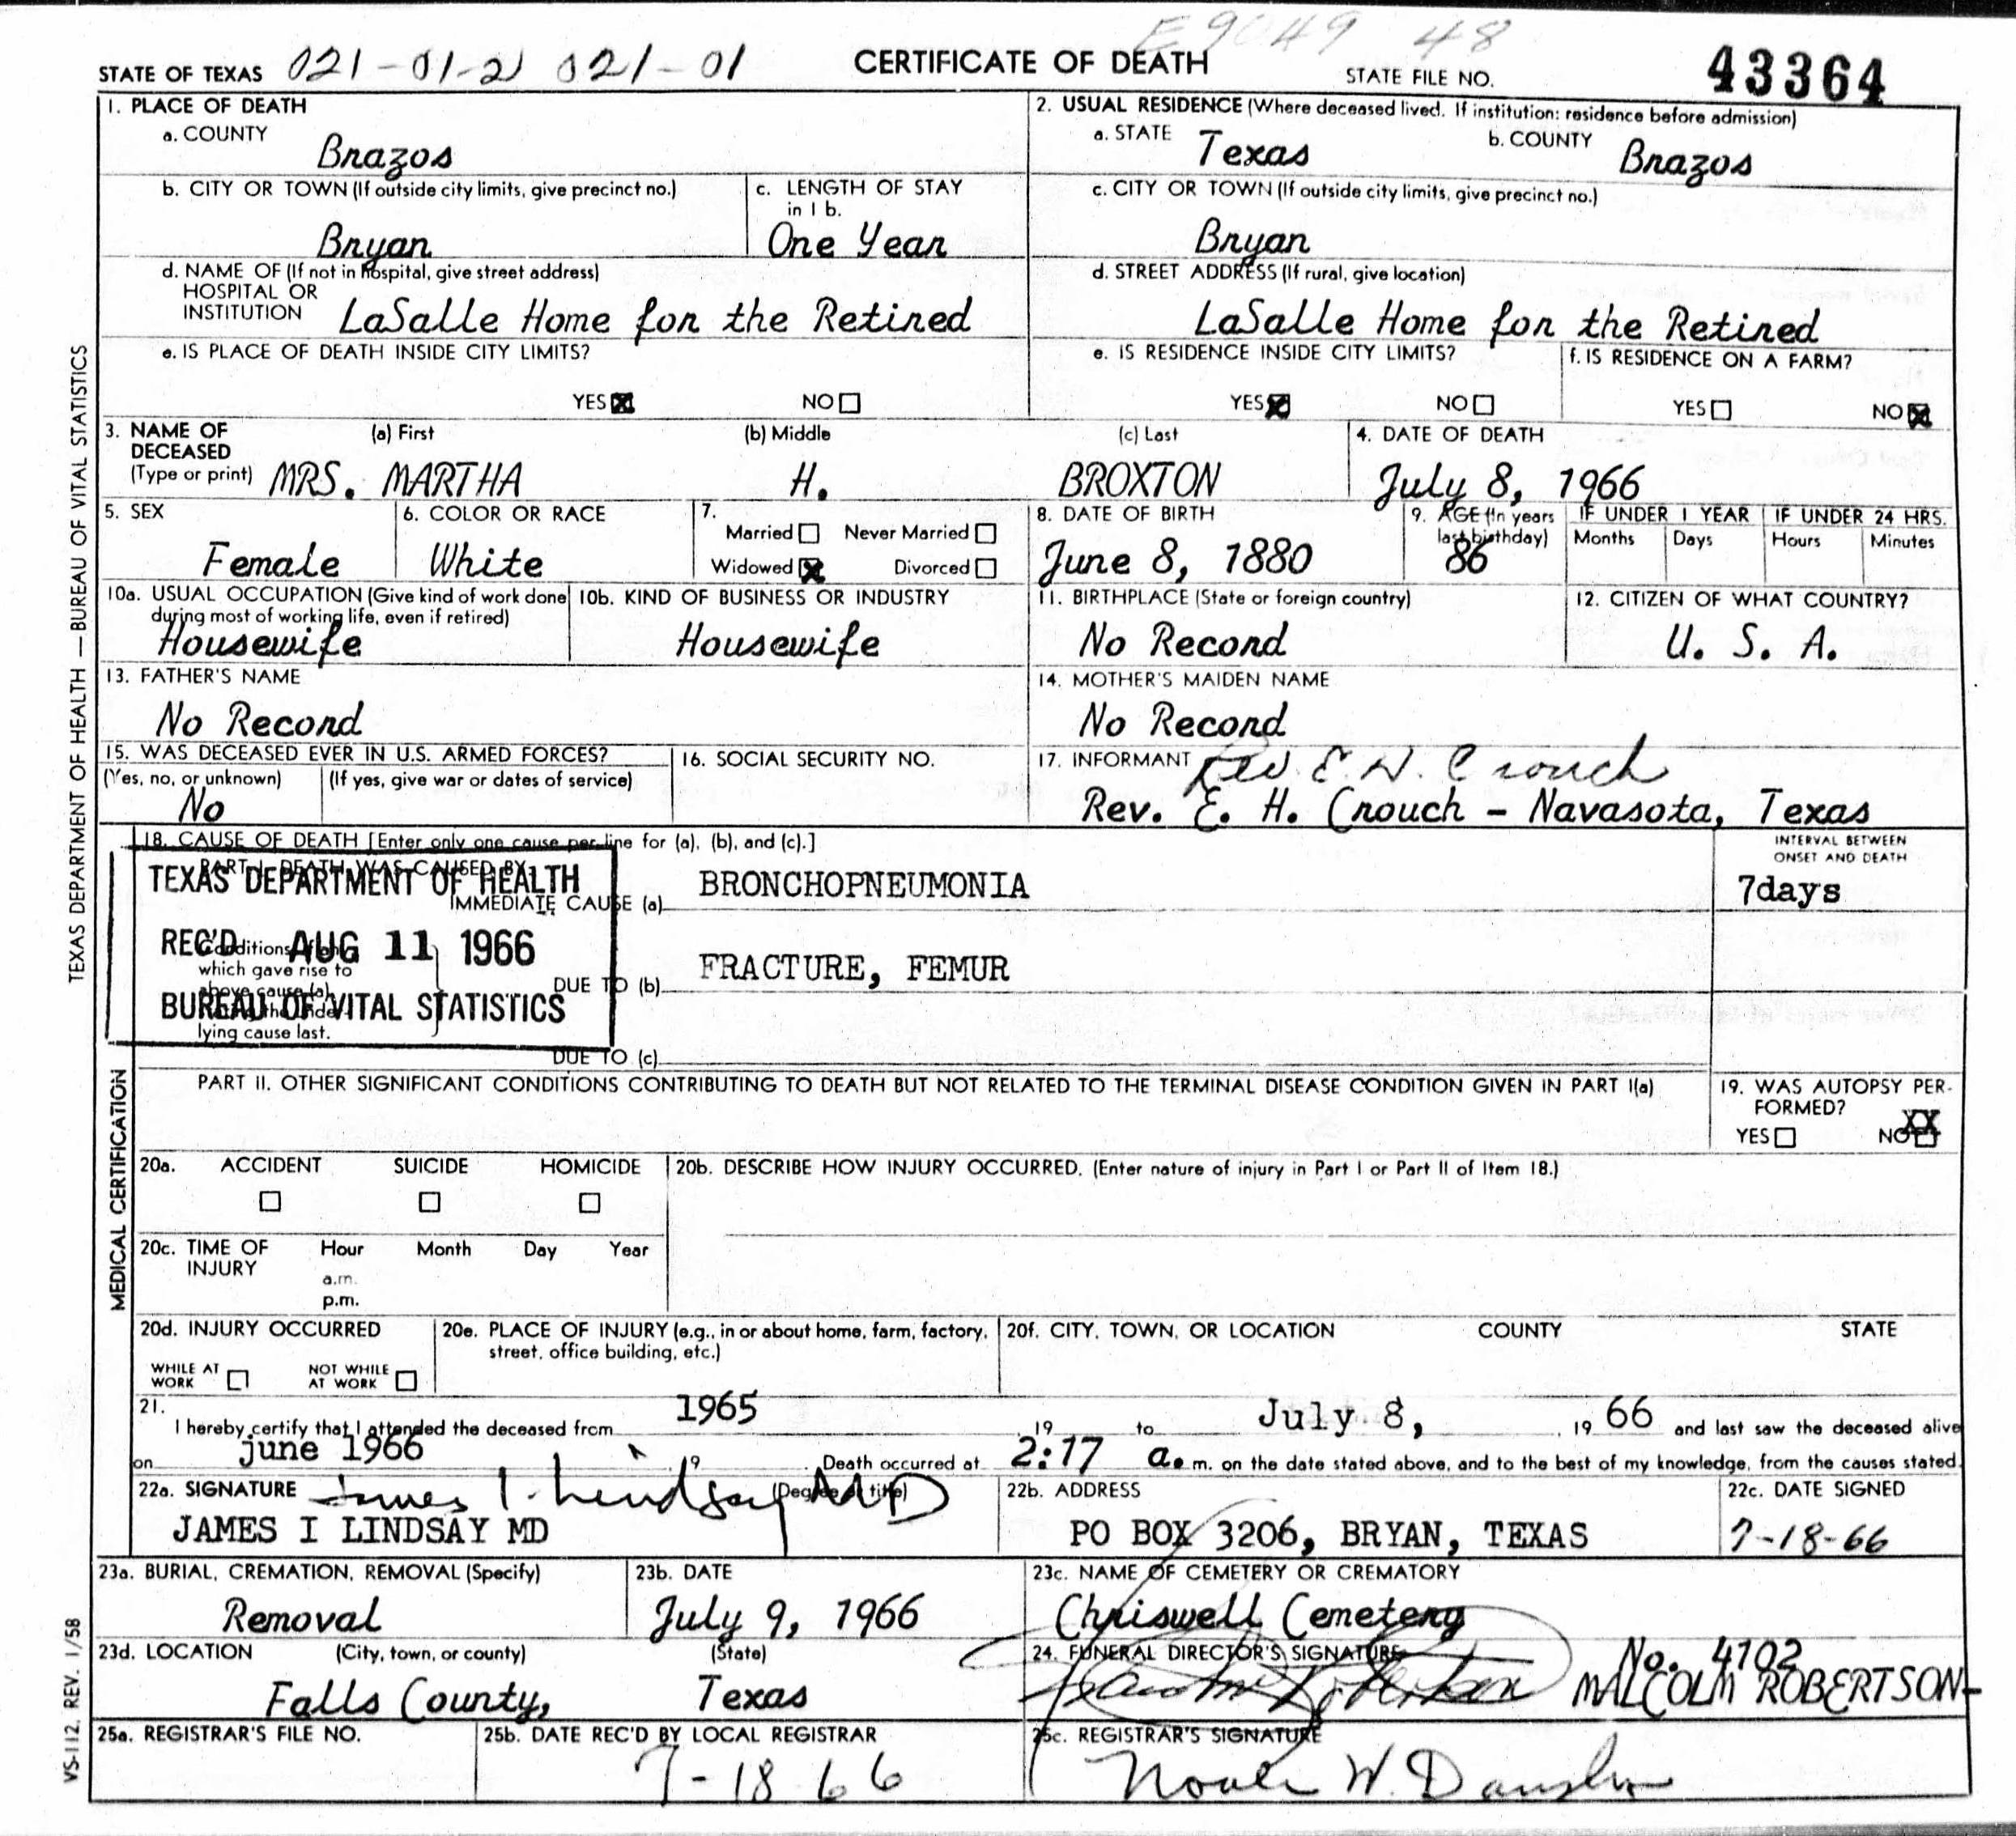 E9049 48
STATE OF TEXAS 021-01-2) 021-01 CERTIFICATE OF DEATH STATE FILE NO. 43364
1. PLACE OF DEATH
a. COUNTY
Brazos
2. USUAL RESIDENCE (Where deceased lived. If institution: residence before admission)
a. STATE Texas b. COUNTY Brazos
b. CITY OR TOWN (If outside city limits, give precinct no.)
Bryan
c. LENGTH OF STAY
in 1 b.
One Year
c. CITY OR TOWN (If outside city limits, give precinct no.)
Bryan
d. NAME OF (If not in hospital, give street address)
HOSPITAL OR
INSTITUTION LaSalle Home for the Retired
d. STREET ADDRESS (If rural, give location)
LaSalle Home for the Retired
e. IS PLACE OF DEATH INSIDE CITY LIMITS?
YES NO
e. IS RESIDENCE INSIDE CITY LIMITS?
YES NO
f. IS RESIDENCE ON A FARM?
YES NO
3. NAME OF (a) First (b) Middle (c) Last
DECEASED
(Type or print) MRS. MARTHA H. BROXTON
4. DATE OF DEATH
July 8, 1966
5. SEX
Female
6. COLOR OR RACE
White
7.
Married Never Married
Widowed Divorced
8. DATE OF BIRTH
June 8, 1880
9. AGE (In years
last birthday)
86
IF UNDER 1 YEAR IF UNDER 24 HRS.
Months Days Hours Minutes
10a. USUAL OCCUPATION (Give kind of work done
during most of working life, even if retired)
Housewife
10b. KIND OF BUSINESS OR INDUSTRY
Housewife
11. BIRTHPLACE (State or foreign country)
No Record
12. CITIZEN OF WHAT COUNTRY?
U. S. A.
13. FATHER'S NAME
No Record
14. MOTHER'S MAIDEN NAME
No Record
15. WAS DECEASED EVER IN U.S. ARMED FORCES?
(Yes, no, or unknown) (If yes, give war or dates of service)
No
16. SOCIAL SECURITY NO.
17. INFORMANT Rev. E. H. Crouch
Rev. E. H. Crouch - Navasota, Texas
18. CAUSE OF DEATH [Enter only one cause per line for (a), (b), and (c).]
INTERVAL BETWEEN
ONSET AND DEATH
PART I. DEATH WAS CAUSED BY
IMMEDIATE CAUSE (a) BRONCHOPNEUMONIA 7days
TEXAS DEPARTMENT OF HEALTH
REC'D AUG 11 1966
BUREAU OF VITAL STATISTICS
Conditions
which gave rise to
above cause (a)
lying cause last.
DUE TO (b) FRACTURE, FEMUR
DUE TO (c)
PART II. OTHER SIGNIFICANT CONDITIONS CONTRIBUTING TO DEATH BUT NOT RELATED TO THE TERMINAL DISEASE CONDITION GIVEN IN PART I(a)
19. WAS AUTOPSY PER-
FORMED?
YES NO XX
20a. ACCIDENT SUICIDE HOMICIDE
20b. DESCRIBE HOW INJURY OCCURRED. (Enter nature of injury in Part I or Part II of Item 18.)
20c. TIME OF Hour Month Day Year
INJURY
a.m.
p.m.
20d. INJURY OCCURRED
WHILE AT
WORK
NOT WHILE
AT WORK
20e. PLACE OF INJURY (e.g., in or about home, farm, factory,
street, office building, etc.)
20f. CITY, TOWN, OR LOCATION COUNTY STATE
21.
I hereby certify that I attended the deceased from 1965 , 19 to July 8, , 19 66 and last saw the deceased alive
on june 1966 , 19 . Death occurred at 2:17 a. m. on the date stated above, and to the best of my knowledge, from the causes stated.
22a. SIGNATURE James I. Lindsay MD (Degree or title)
JAMES I LINDSAY MD
22b. ADDRESS
PO BOX 3206, BRYAN, TEXAS
22c. DATE SIGNED
7-18-66
23a. BURIAL, CREMATION, REMOVAL (Specify)
Removal
23b. DATE
July 9, 1966
23c. NAME OF CEMETERY OR CREMATORY
Chriswell Cemetery
23d. LOCATION (City, town, or county) (State)
Falls County, Texas
24. FUNERAL DIRECTOR'S SIGNATURE
No. 4102
MALCOLM ROBERTSON-
25a. REGISTRAR'S FILE NO.
25b. DATE REC'D BY LOCAL REGISTRAR
7-18 66
25c. REGISTRAR'S SIGNATURE
TEXAS DEPARTMENT OF HEALTH — BUREAU OF VITAL STATISTICS
MEDICAL CERTIFICATION
VS-112. REV. 1/58